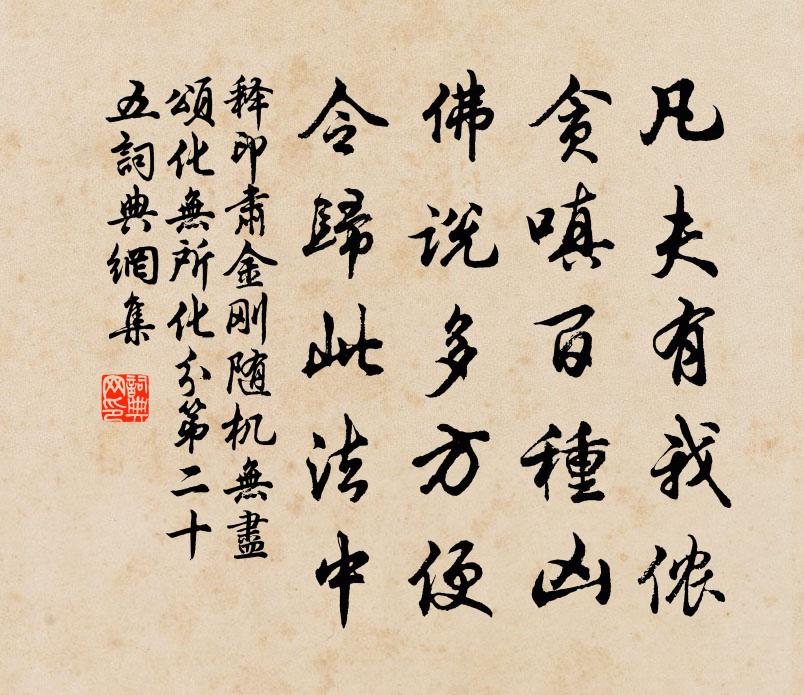 凡夫有我侬
贪嗔百種凶
佛説多方便
令歸此法中
释印肃金刚随机無盡
頌化無所化分第二十
五詞典網集
詞典网印